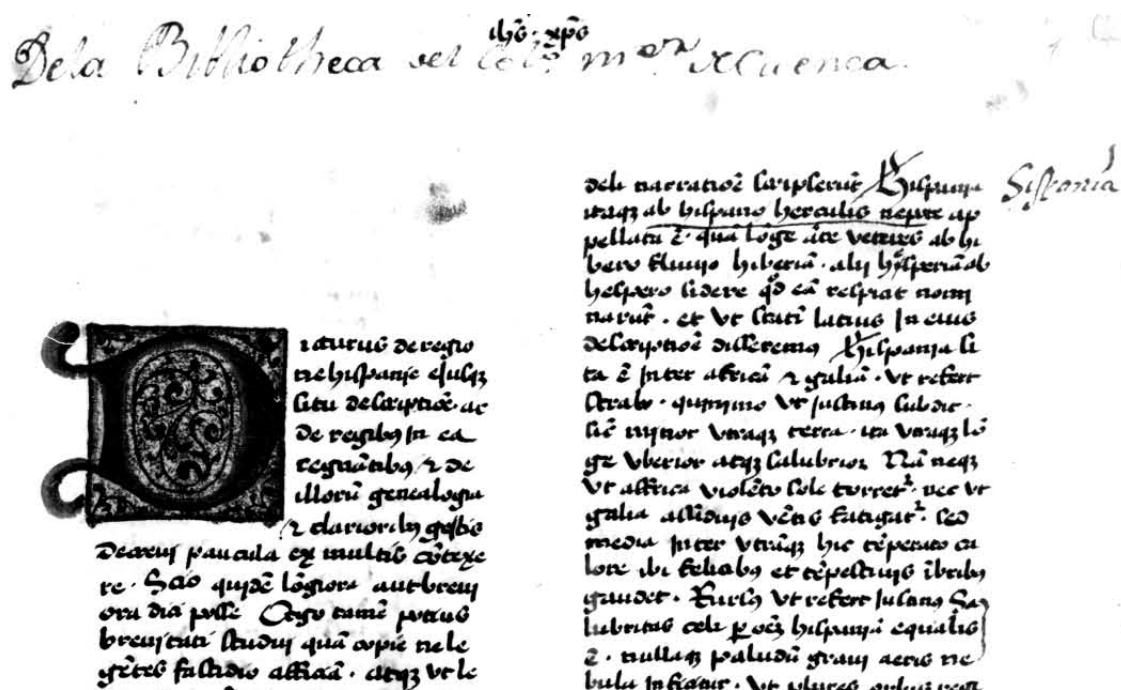 ihs. xps
Dela Bibliotheca del Colº mor de Cuenca.
Dicturus de regio
ne hispanie ejusqꝫ
situ descriptiōe. ac
de regibꝰ in ea
regnātibꝰ ⁊ de
illorū genealogia
⁊ clarioribꝰ gestis
decreuj paucula ex multis cōtexe
re. Scio quidē lōgiora aut breuj
ora dici posse Ergo tamē potius
breuitati studuj quā copie ne le
gētes fastidio afficiā. atqꝫ vt le
deli narratiōē scripserūt Hispania
itaqꝫ ab hispano herculis nepote ap
pellata ē. quā lōge āte veteres ab hi
bero fluujo hiberiā. alij hesperiā ab
hespero sidere qd eā respiciat nomi
narūt. et vt statī latius In eius
descriptiōe disseremꝰ Hispania si
ta ē Inter africā ⁊ galiā. vt refert
strabo. quinimo vt justinꝰ subdit.
sic minor vtraqꝫ terra. ita vtraqꝫ lō
ge vberior atqꝫ salubrior Nā neqꝫ
vt affrica violēto sole torretr. nec vt
galia assiduis vētis fatigatr. sed
media Inter vtrāqꝫ hic tēperato ca
lore ibi felicibꝰ et tēpestiuis ībribꝰ
gaudet. Rursꝰ vt refert justinꝰ Sa
lubritas celi ꝑ oēꝫ hispaniā equalis
ē. nullaqꝫ paludū graui aeris ne
bula Inficitur. vt plures
Hispania